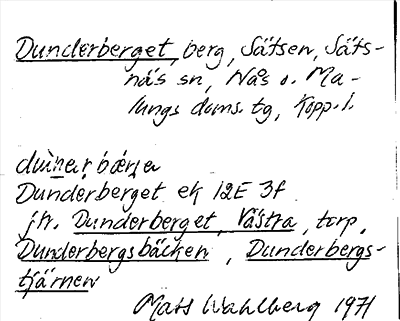 Dunderberget, berg, Sätsen, Säts-
näs sn, Nås o. Ma-
lungs doms. tg, Kopp. l.
Dunderberget ek 12E 3f
jfr. Dunderberget, Västra, torp,
Dunderbergsbäcken, Dunderbergs-
tjärnen
Mats Wahlberg 1971